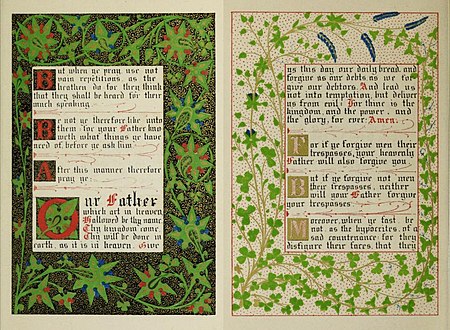 But when ye pray use not
vain repetitions, as the
heathen do for they think
that they shall be heard for their
much speaking.
Be not ye therefore like unto
them: for your Father kno
weth what things ye have
need of, before ye ask him.
After this manner therefore
pray ye:
Our Father
which art in heaven
Hallowed be thy name
Thy kingdom come
Thy will be done in
earth, as it is in heaven. Give
us this day our daily bread, and
forgive us our debts as we for
give our debtors. And lead us
not into temptation, but deliver
us from evil: For thine is the
kingdom, and the power, and
the glory, for ever. Amen.
For if ye forgive men their
trespasses, your heavenly
Father will also forgive you.
But if ye forgive not men
their trespasses, neither
will your Father forgive
your trespasses.
Moreover, when ye fast be
not, as the hypocrites, of a
sad countenance: for they
disfigure their faces, that they